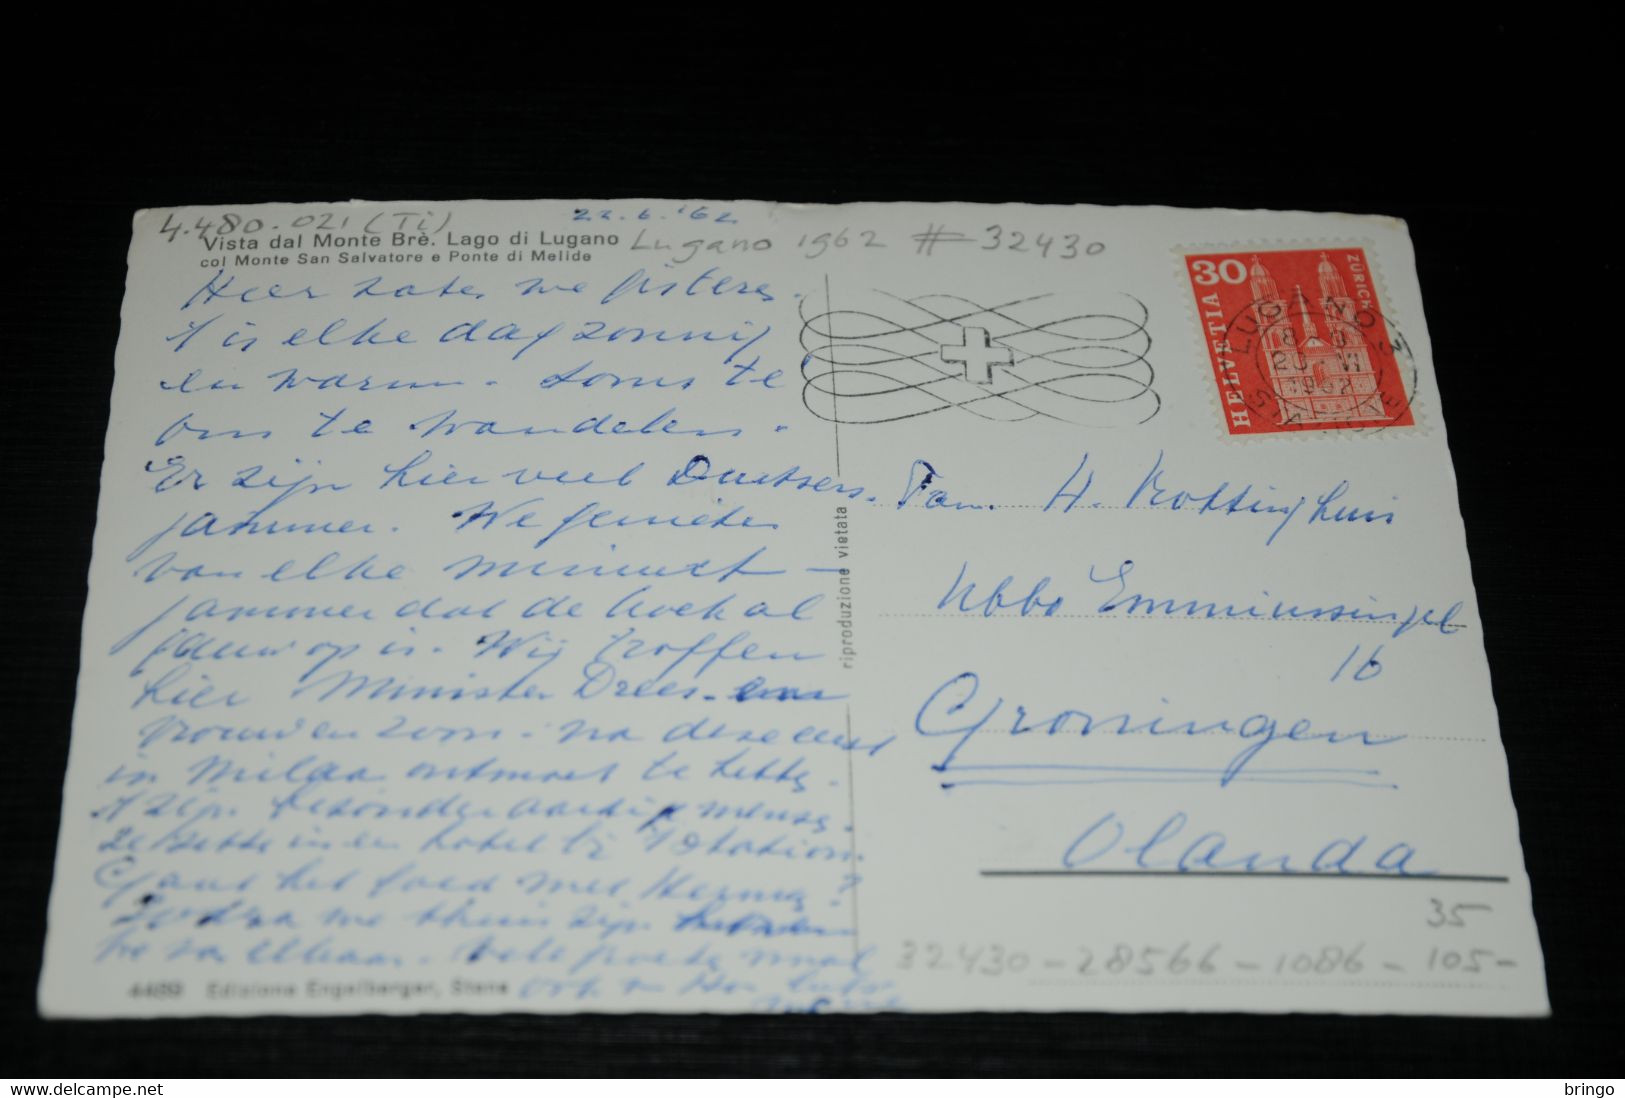 4.480.021 (Ti)
22.6.'62
Vista dal Monte Brè. Lago di Lugano
col Monte San Salvatore e Ponte di Melide
Lugano 1962 # 32430
Hier zaten we gisteren.
't is elke dag zonnig
en warm. Soms te
om te wandelen.
Er zijn hier veel Duitsers
jammer. We genieten
van elke minuut —
jammer dat de week al
op is. Wij troffen
hier Minister Drees
vrouw en zoon. na deze eerst
in Milaan ontmoet te hebben.
't zijn bezonder aardige mensen.
in en hotel bij 't station.
Gaat het goed met
we thuis zijn
we elkaar. Vele groeten
riproduzione vietata
4489 Edizione Engelberger, Stans
HELVETIA 30
ZÜRICH
LUGANO 3
20 VI
1962
Fam. H. Rottinghuis
Ubbo Emmiussingel
16
Groningen
Olanda
35
32430 - 28566 - 1086 - 105 -
bringo